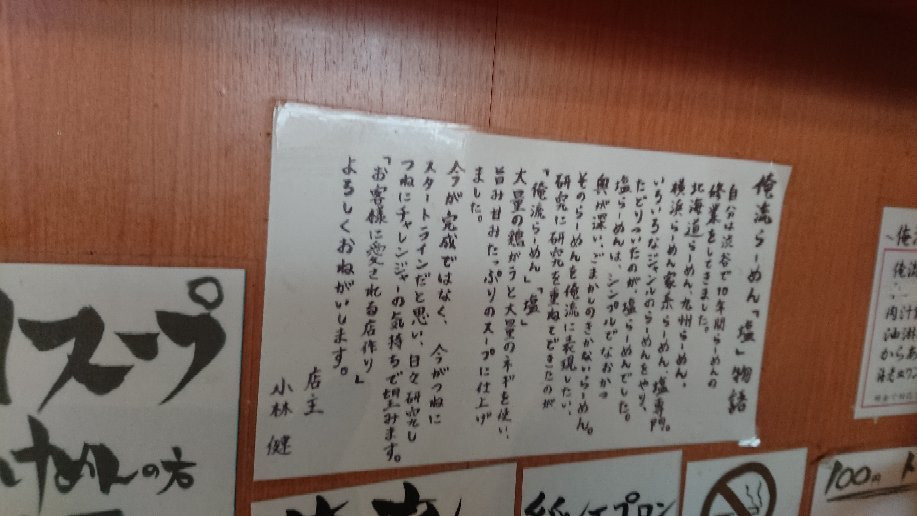 俺流らーめん「塩」物語
自分は渋谷で10年間らーめんの
修業をしてきました。
北海道らーめん、九州らーめん、
横浜らーめん家系らーめん、塩専門。
いろいろなジャンルのらーめんをやり、
たどりついたのが、塩らーめんでした。
塩らーめんは、シンプルでなおかつ
奥が深い、ごまかしのきかないらーめん。
そのらーめんを俺流に表現したい、
研究に研究を重ねてできたのが
「俺流らーめん」「塩」
大量の鶏がらと大量のネギを使い、
旨み甘みたっぷりのスープに仕上げ
ました。
今が完成ではなく、今がつねに
スタートラインだと思い、日々研究し
つねにチャレンジャーの気持ちで望みます。
「お客様に愛される店作り」
よろしくおねがいします。
店主
小林 健
スープ
けめんの方
紙エプロン
100円
俺流
肉汁
油淋
からあ